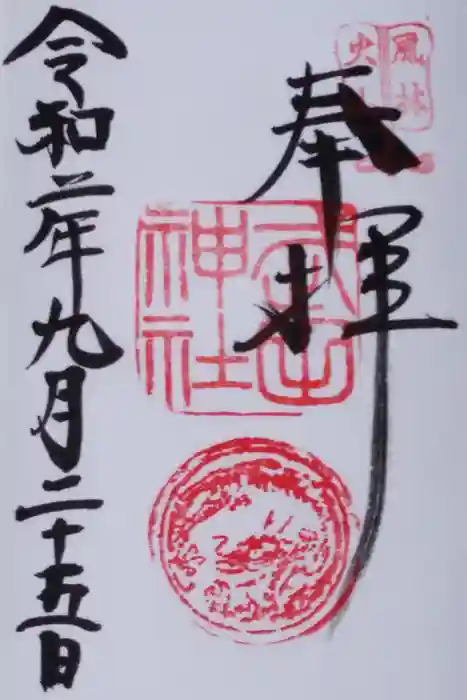 風林
火山
奉拝
武田
神社
令和二年九月二十五日